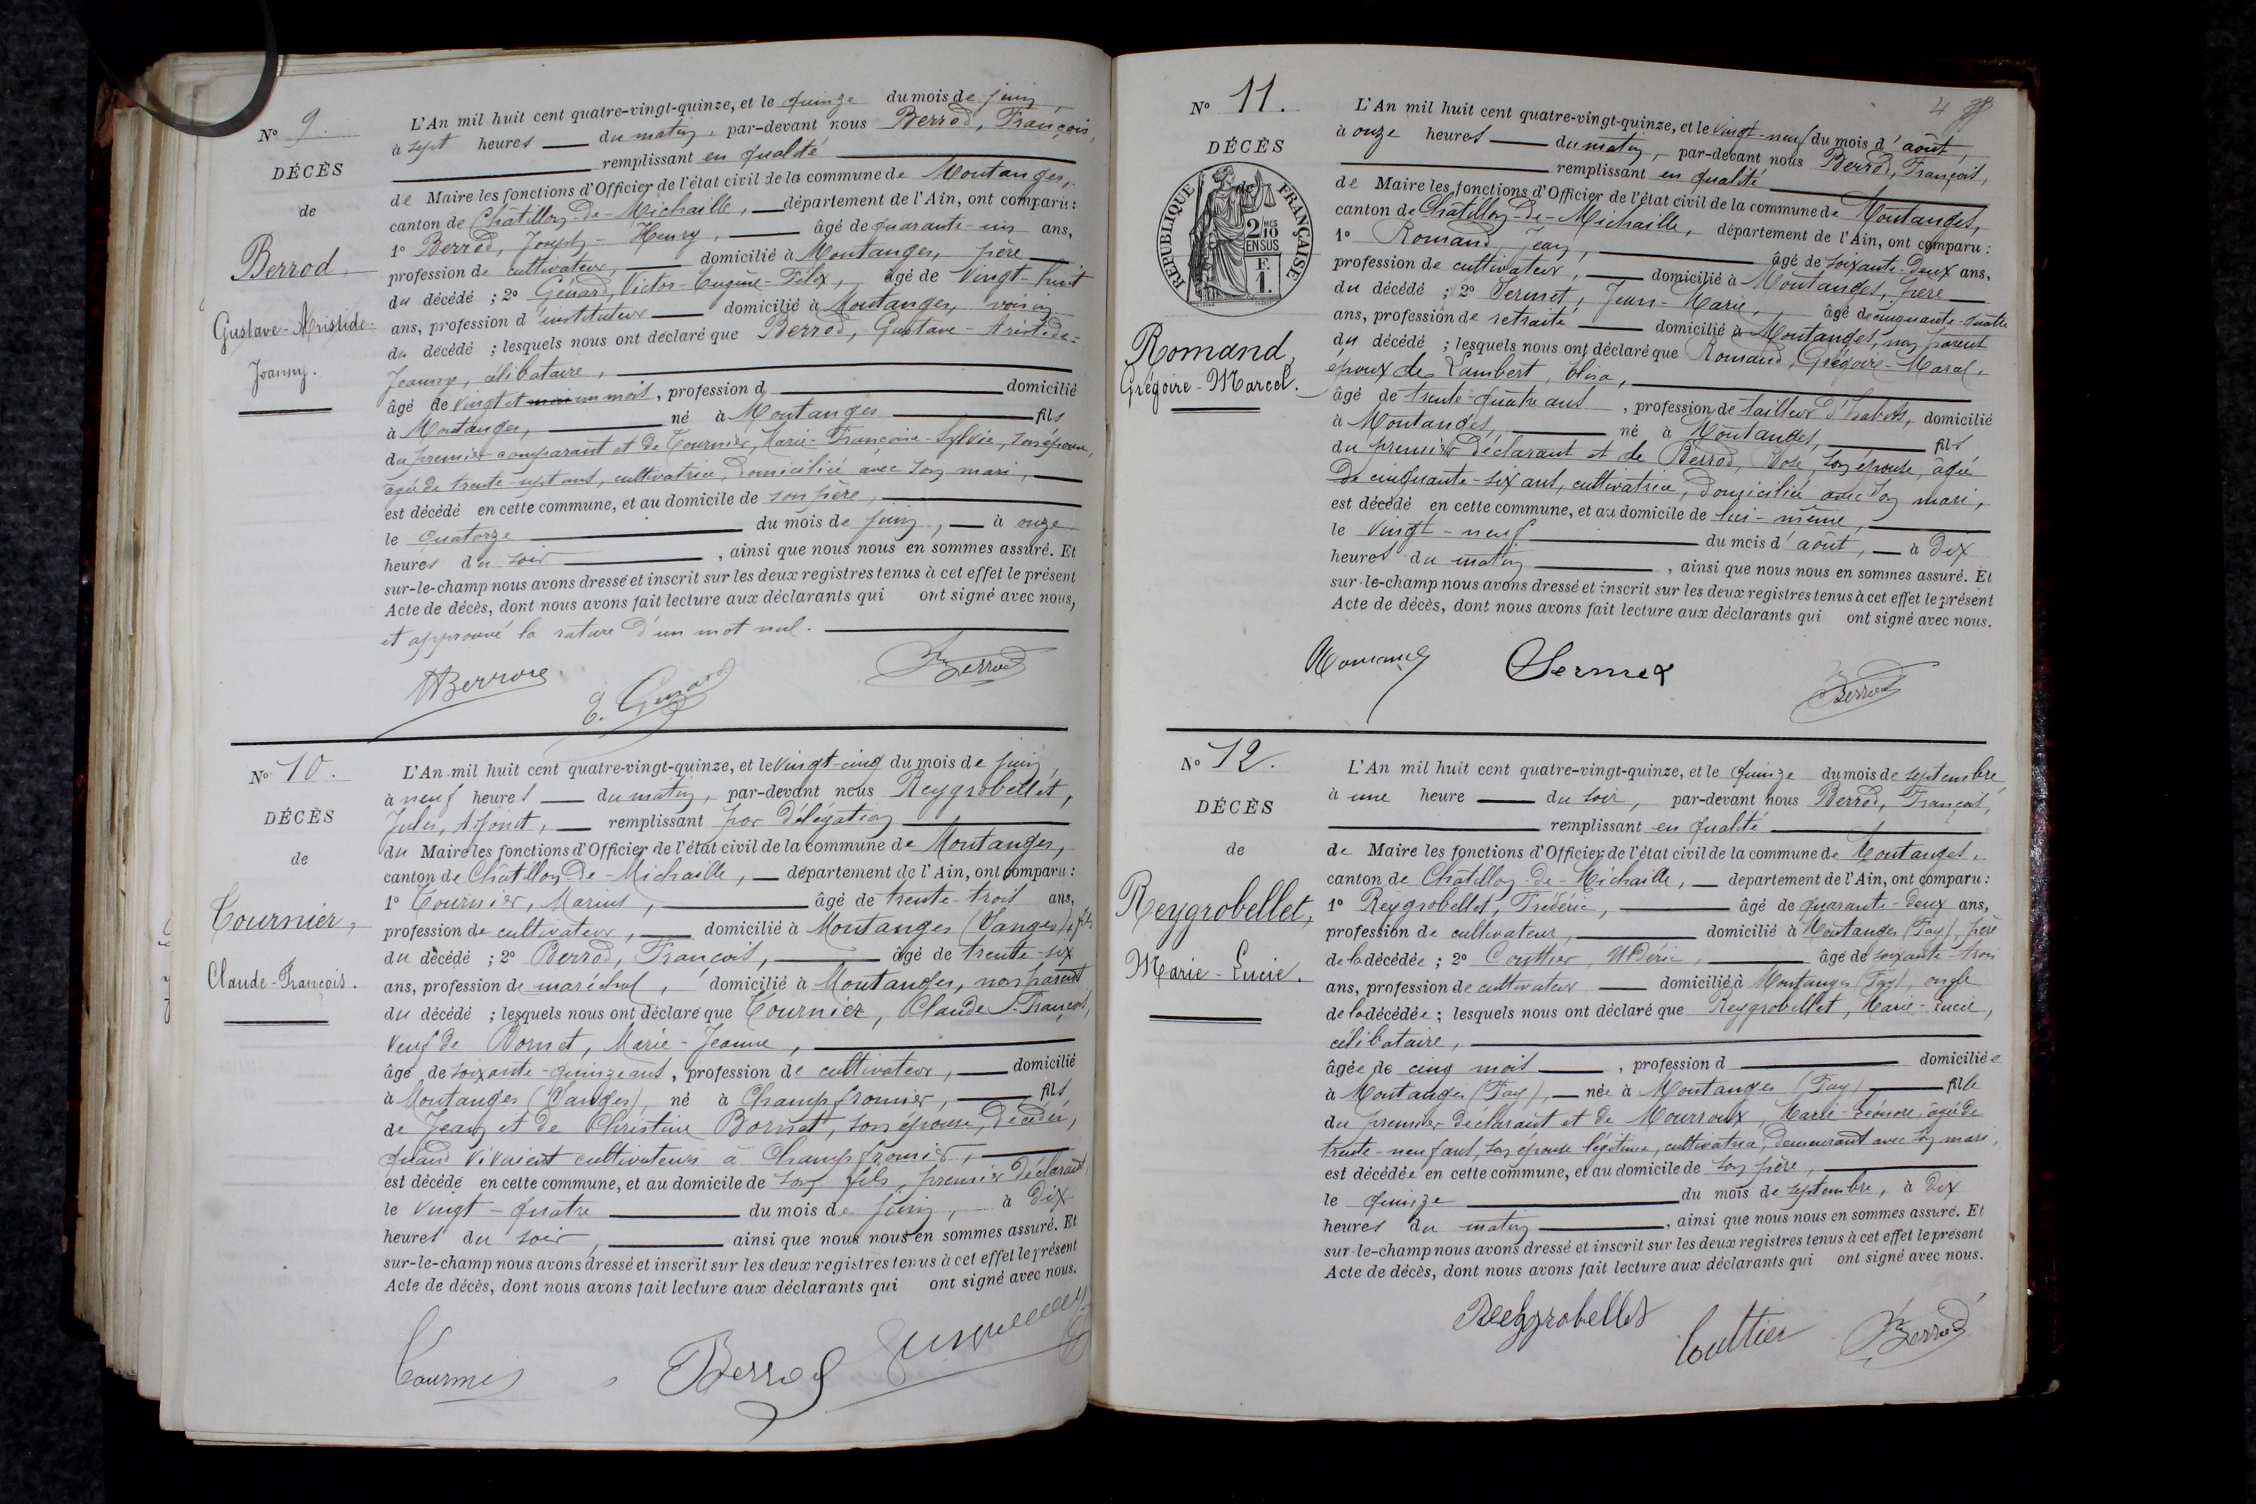 No 9.
DÉCÈS
de
Berrod
Gustave-Aristide-
Joanny.
L'An mil huit cent quatre-vingt-quinze, et le quinze du mois de juin,
à sept heures du matin, par-devant nous Berrod, François,
remplissant en qualité
de Maire les fonctions d'Officier de l'état civil de la commune de Montanges,
canton de Châtillon-de-Michaille, département de l'Ain, ont comparu:
1o Berrod, Joseph-Henry, âgé de quarante-un ans,
profession de cultivateur, domicilié à Montanges, père
du décédé ; 2o Génard, Victor-Eugène-Félix, âgé de vingt-huit
ans, profession d'instituteur domicilié à Montanges, voisin
du décédé ; lesquels nous ont déclaré que Berrod, Gustave-Aristide-
Joanny, célibataire,
âgé de vingt et un mois, profession d domicilié
à Montanges, né à Montanges fils
du premier comparant et de Tournier, Marie-Françoise-Sylvie, son épouse,
âgée de trente-sept ans, cultivatrice, domiciliée avec son mari,
est décédé en cette commune, et au domicile de son père,
le quatorze du mois de juin, à onze
heures du soir, ainsi que nous nous en sommes assuré. Et
sur-le-champ nous avons dressé et inscrit sur les deux registres tenus à cet effet le présent
Acte de décès, dont nous avons fait lecture aux déclarants qui ont signé avec nous,
et approuvé la rature d'un mot nul.
Berrod
E. Génard
Berrod
No 10.
DÉCÈS
de
Tournier,
Claude-François.
L'An mil huit cent quatre-vingt-quinze, et le vingt-cinq du mois de juin,
à neuf heures du matin, par-devant nous Reygrobellet,
Jules, Adjoint, remplissant par délégation
du Maire les fonctions d'Officier de l'état civil de la commune de Montanges,
canton de Châtillon-de-Michaille, département de l'Ain, ont comparu:
1o Tournier, Marius, âgé de trente-trois ans,
profession de cultivateur, domicilié à Montanges (Vanges), fils
du décédé ; 2o Berrod, François, âgé de trente-six
ans, profession de maréchal, domicilié à Montanges, non parent
du décédé ; lesquels nous ont déclaré que Tournier, Claude-François,
veuf de Bornet, Marie-Jeanne,
âgé de soixante-quinze ans, profession de cultivateur, domicilié
à Montanges (Vanges), né à Champfromier, fils
de Jean et de Christine Bornet, son épouse, décédés,
quand vivaient cultivateurs à Champfromier,
est décédé en cette commune, et au domicile de son fils, premier déclarant
le vingt-quatre du mois de juin, à dix
heures du soir, ainsi que nous nous en sommes assuré. Et
sur-le-champ nous avons dressé et inscrit sur les deux registres tenus à cet effet le présent
Acte de décès, dont nous avons fait lecture aux déclarants qui ont signé avec nous.
Tournier
Berrod
No 11.
DÉCÈS
de
RÉPUBLIQUE FRANÇAISE
2 MES
10
EN SUS
F.
1.
Romand,
Grégoire-Marcel.
L'An mil huit cent quatre-vingt-quinze, et le vingt-neuf du mois d'août,
à onze heures du matin, par-devant nous Berrod, François,
remplissant en qualité
de Maire les fonctions d'Officier de l'état civil de la commune de Montanges,
canton de Châtillon-de-Michaille, département de l'Ain, ont comparu :
1o Romand, Jean, âgé de soixante-deux ans,
profession de cultivateur, domicilié à Montanges, père
du décédé ; 2o Sermet, Jean-Marie, âgé de cinquante-quatre
ans, profession de retraité domicilié à Montanges, non parent
du décédé ; lesquels nous ont déclaré que Romand, Grégoire-Marcel,
époux de Lambert, Elisa,
âgé de trente-quatre ans, profession de tailleur d'habits, domicilié
à Montanges, né à Montanges, fils
du premier déclarant et de Berrod, Rose, son épouse, âgée
de cinquante-six ans, cultivatrice, domiciliée avec son mari,
est décédé en cette commune, et au domicile de lui-même,
le vingt-neuf du mois d'août, à dix
heures du matin, ainsi que nous nous en sommes assuré. Et
sur-le-champ nous avons dressé et inscrit sur les deux registres tenus à cet effet le présent
Acte de décès, dont nous avons fait lecture aux déclarants qui ont signé avec nous.
Romand
Sermet
Berrod
No 12.
DÉCÈS
de
Reygrobellet,
Marie-Lucie.
L'An mil huit cent quatre-vingt-quinze, et le quinze du mois de septembre
à une heure du soir, par-devant nous Berrod, François,
remplissant en qualité
de Maire les fonctions d'Officier de l'état civil de la commune de Montanges,
canton de Châtillon-de-Michaille, département de l'Ain, ont comparu :
1o Reygrobellet, Frédéric, âgé de quarante-deux ans,
profession de cultivateur, domicilié à Montanges (Fay), père
de la décédée ; 2o Couttier, âgé de soixante-trois
ans, profession de cultivateur domicilié à Montanges (Fay), oncle
de la décédée ; lesquels nous ont déclaré que Reygrobellet, Marie-Lucie,
célibataire,
âgée de cinq mois, profession d domiciliée
à Montanges (Fay), née à Montanges (Fay) fille
du premier déclarant et de Mourroux, Marie-Léonore, âgée de
trente-neuf ans, son épouse légitime, cultivatrice, demeurant avec son mari,
est décédée en cette commune, et au domicile de son père,
le quinze du mois de septembre, à dix
heures du matin, ainsi que nous nous en sommes assuré. Et
sur-le-champ nous avons dressé et inscrit sur les deux registres tenus à cet effet le présent
Acte de décès, dont nous avons fait lecture aux déclarants qui ont signé avec nous.
Reygrobellet
Couttier
Berrod